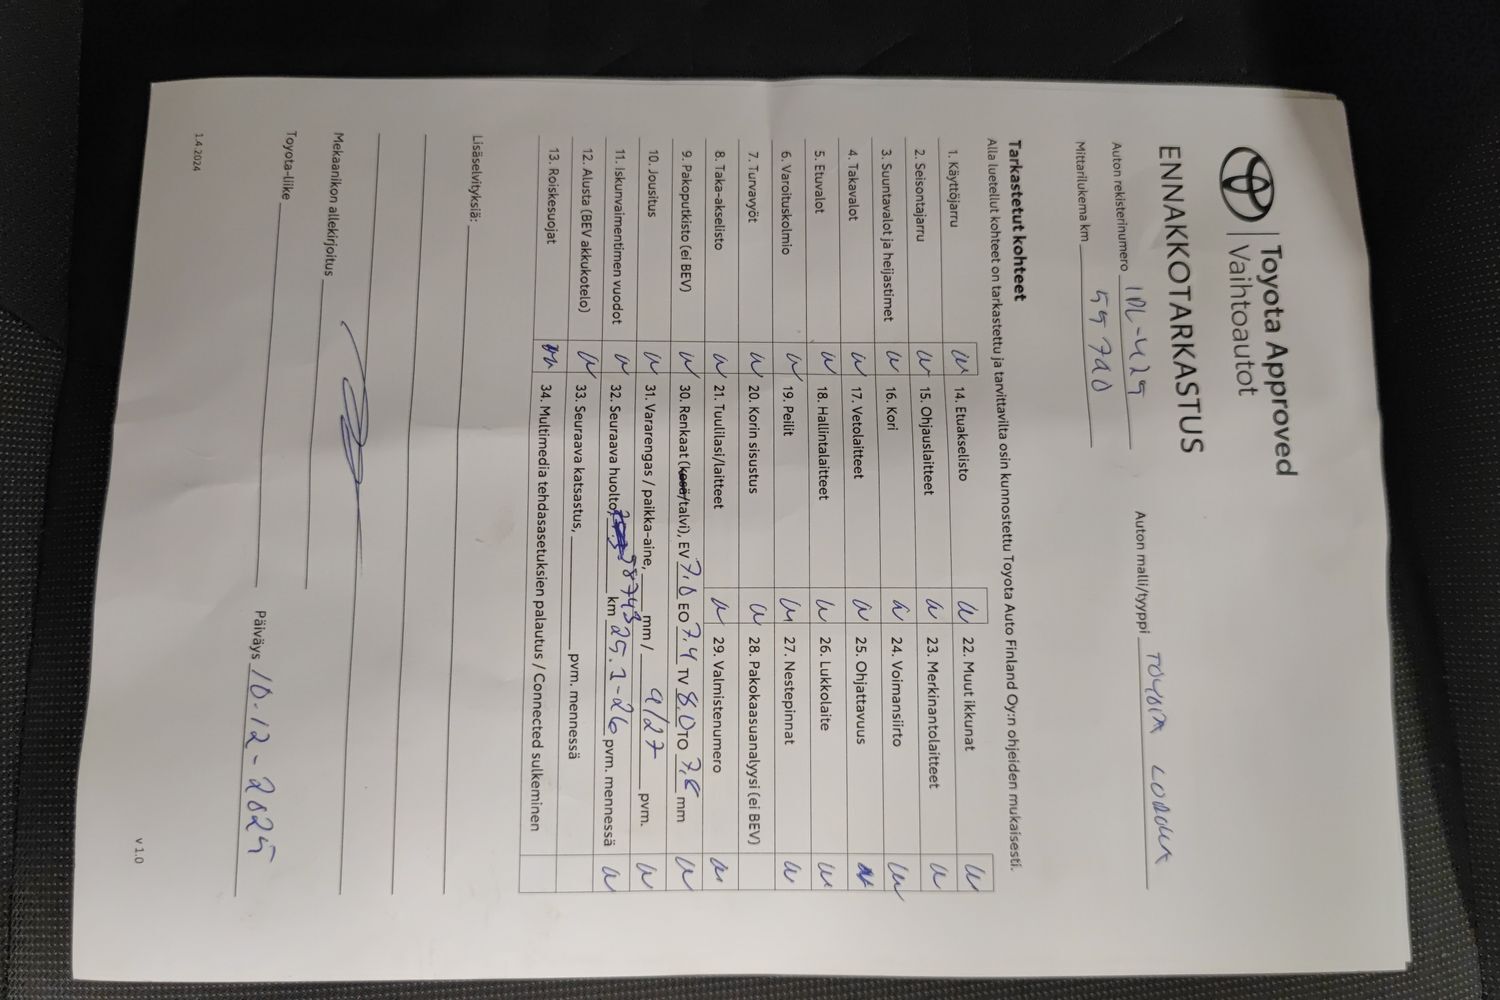 Toyota Approved
Vaihtoautot
ENNAKKOTARKASTUS
Auton rekisterinumero IPL-429 Auton malli/tyyppi TOYOTA COROLLA
Mittarilukema km
Tarkastetut kohteet
Alla luetellut kohteet on tarkastettu ja tarvittavilta osin kunnostettu Toyota Auto Finland Oy:n ohjeiden mukaisesti.
1. Käyttöjarru 14. Etuakselisto 22. Muut ikkunat
2. Seisontajarru 15. Ohjauslaitteet 23. Merkinantolaitteet
3. Suuntavalot ja heijastimet 16. Kori 24. Voimansiirto
4. Takavalot 17. Vetolaitteet 25. Ohjattavuus
5. Etuvalot 18. Hallintalaitteet 26. Lukkolaite
6. Varoituskolmio 19. Peilit 27. Nestepinnat
7. Turvavyöt 20. Korin sisustus 28. Pakokaasuanalyysi (ei BEV)
8. Taka-akselisto 21. Tuulilasi/laitteet 29. Valmistenumero
9. Pakoputkisto (ei BEV) 30. Renkaat (kesä/talvi), EV 7,0 EO 7,4 TV 8,0 TO mm
10. Jousitus 31. Vararengas / paikka-aine, mm / 9/27 pvm.
11. Iskunvaimentimen vuodot 32. Seuraava huolto, 58743 km 25.1-26 pvm. mennessä
12. Alusta (BEV akkukotelo) 33. Seuraava katsastus, pvm. mennessä
13. Roiskesuojat 34. Multimedia tehdasasetuksien palautus / Connected sulkeminen
Lisäselvityksiä:
Mekaanikon allekirjoitus
Toyota-liike Päiväys 10-12-2025
1.4.2024 v 1.0